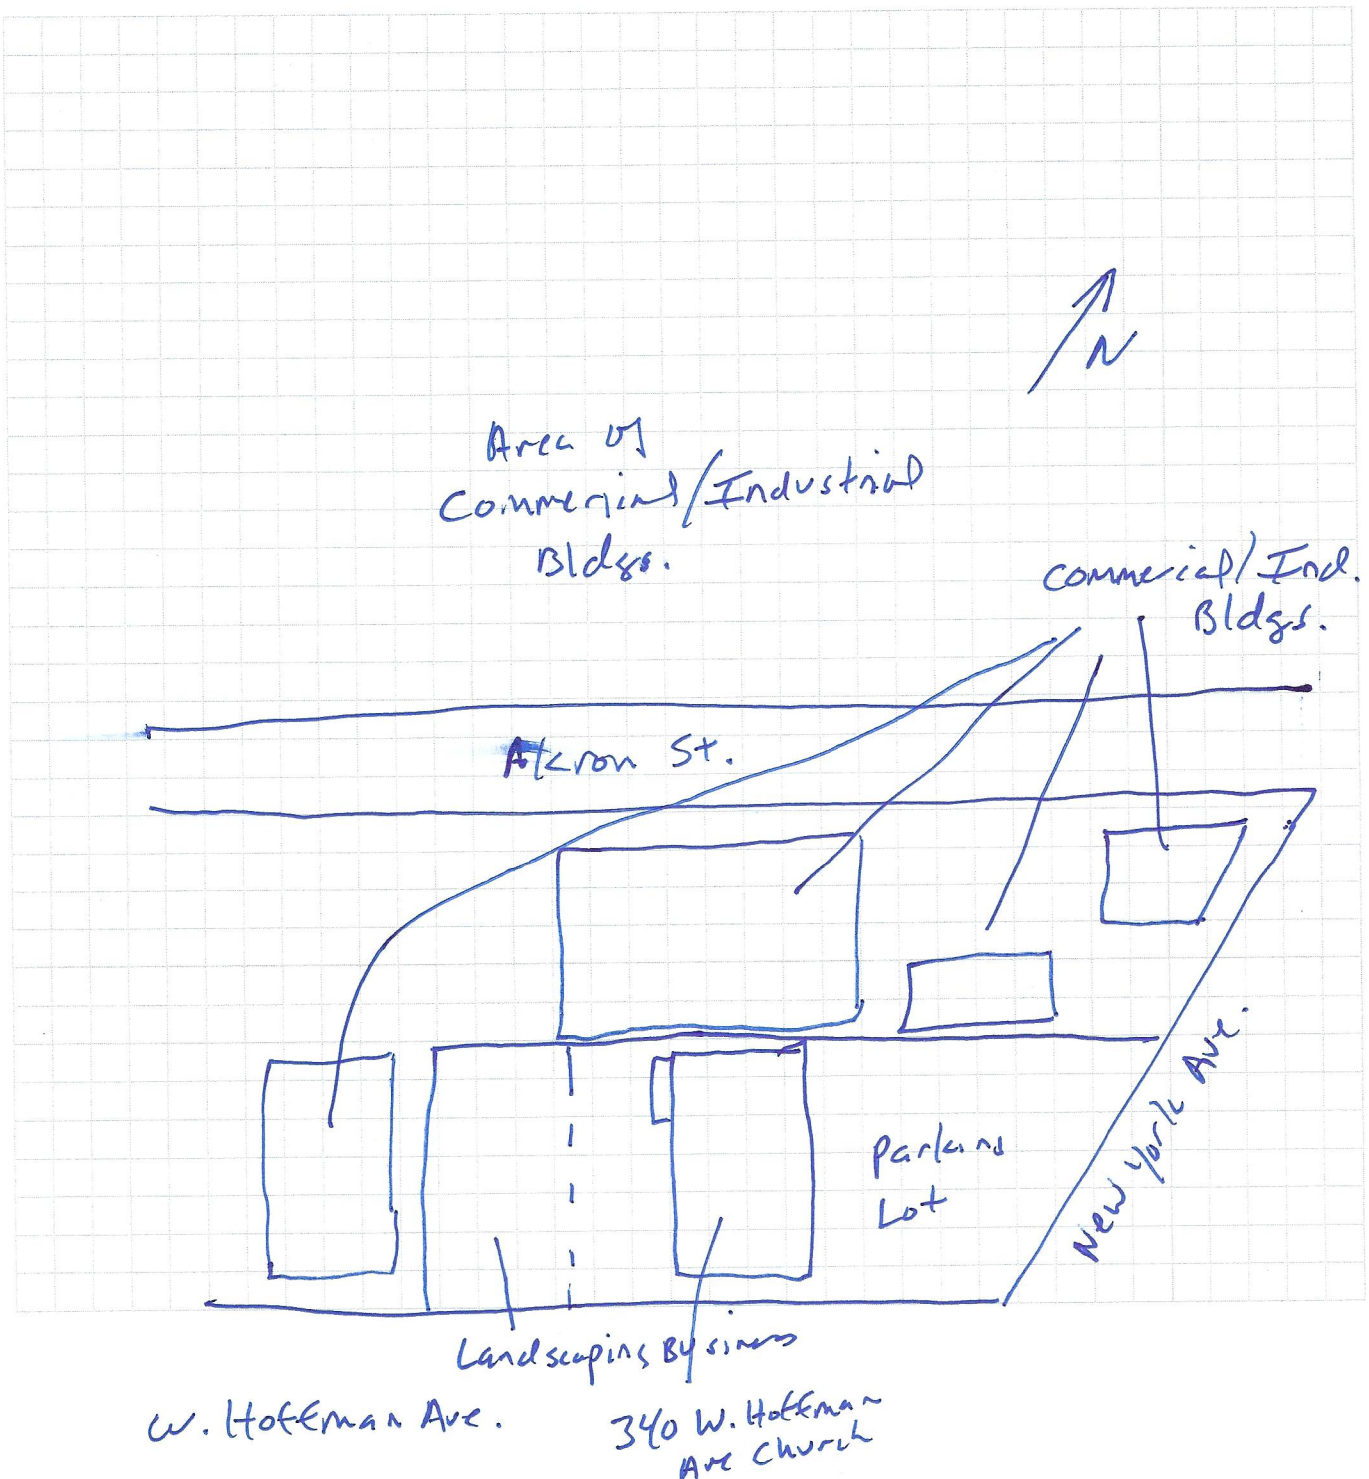 N
Area of
Commercial/Industrial
Bldgs.
Commericial/Ind.
Bldgs.
Akron St.
New York Ave.
Parking
Lot
Landscaping Business
W. Hoffman Ave.
340 W. Hoffman
Ave Church